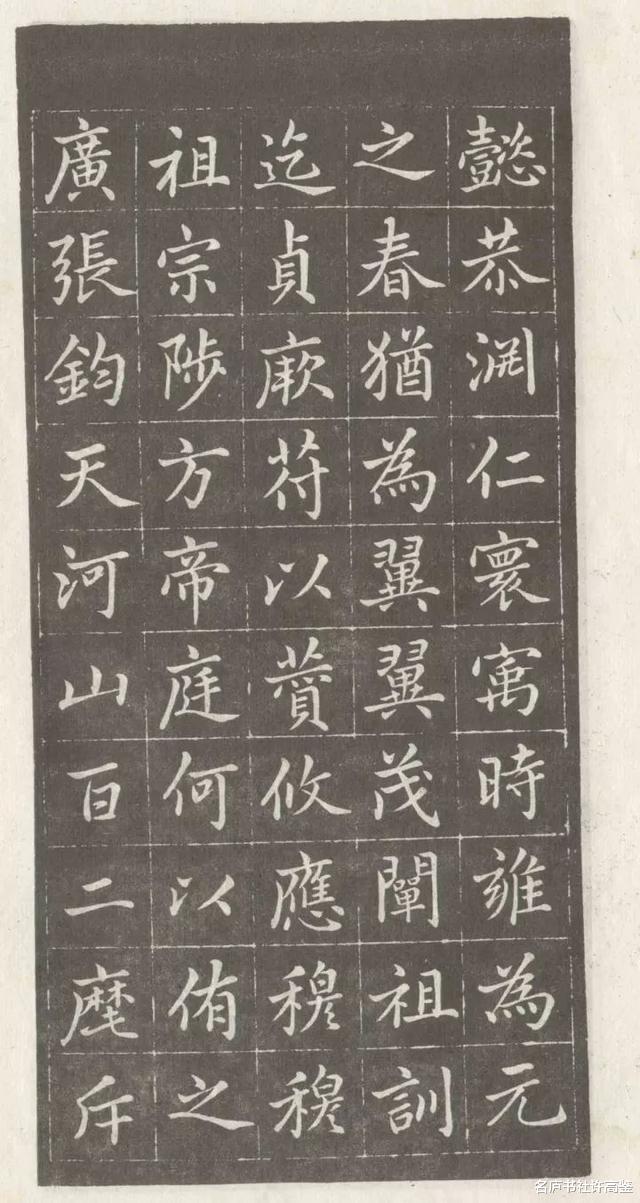 懿恭渊仁寰寓時雍為元
之春猶為翼翼茂闡祖訓
迄貞厥苻以蕡攸應穆穆
祖宗陟方帝庭何以侑之
廣張鈞天河山百二麾斥
名庐书社许高鉴